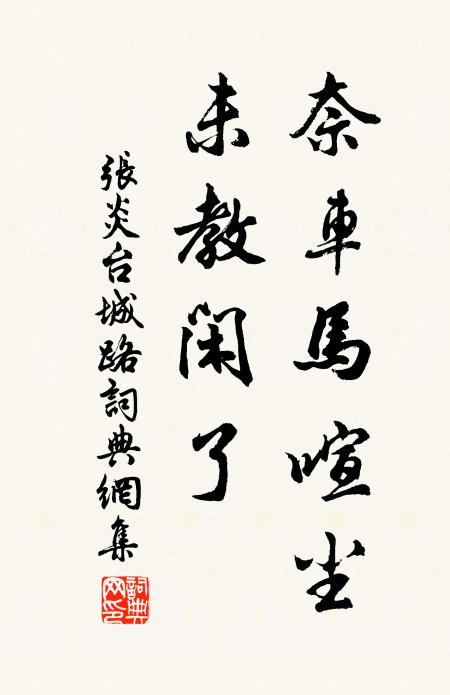 奈車馬喧尘
未教閑了
張炎台城路詞典網集
詞典
网印